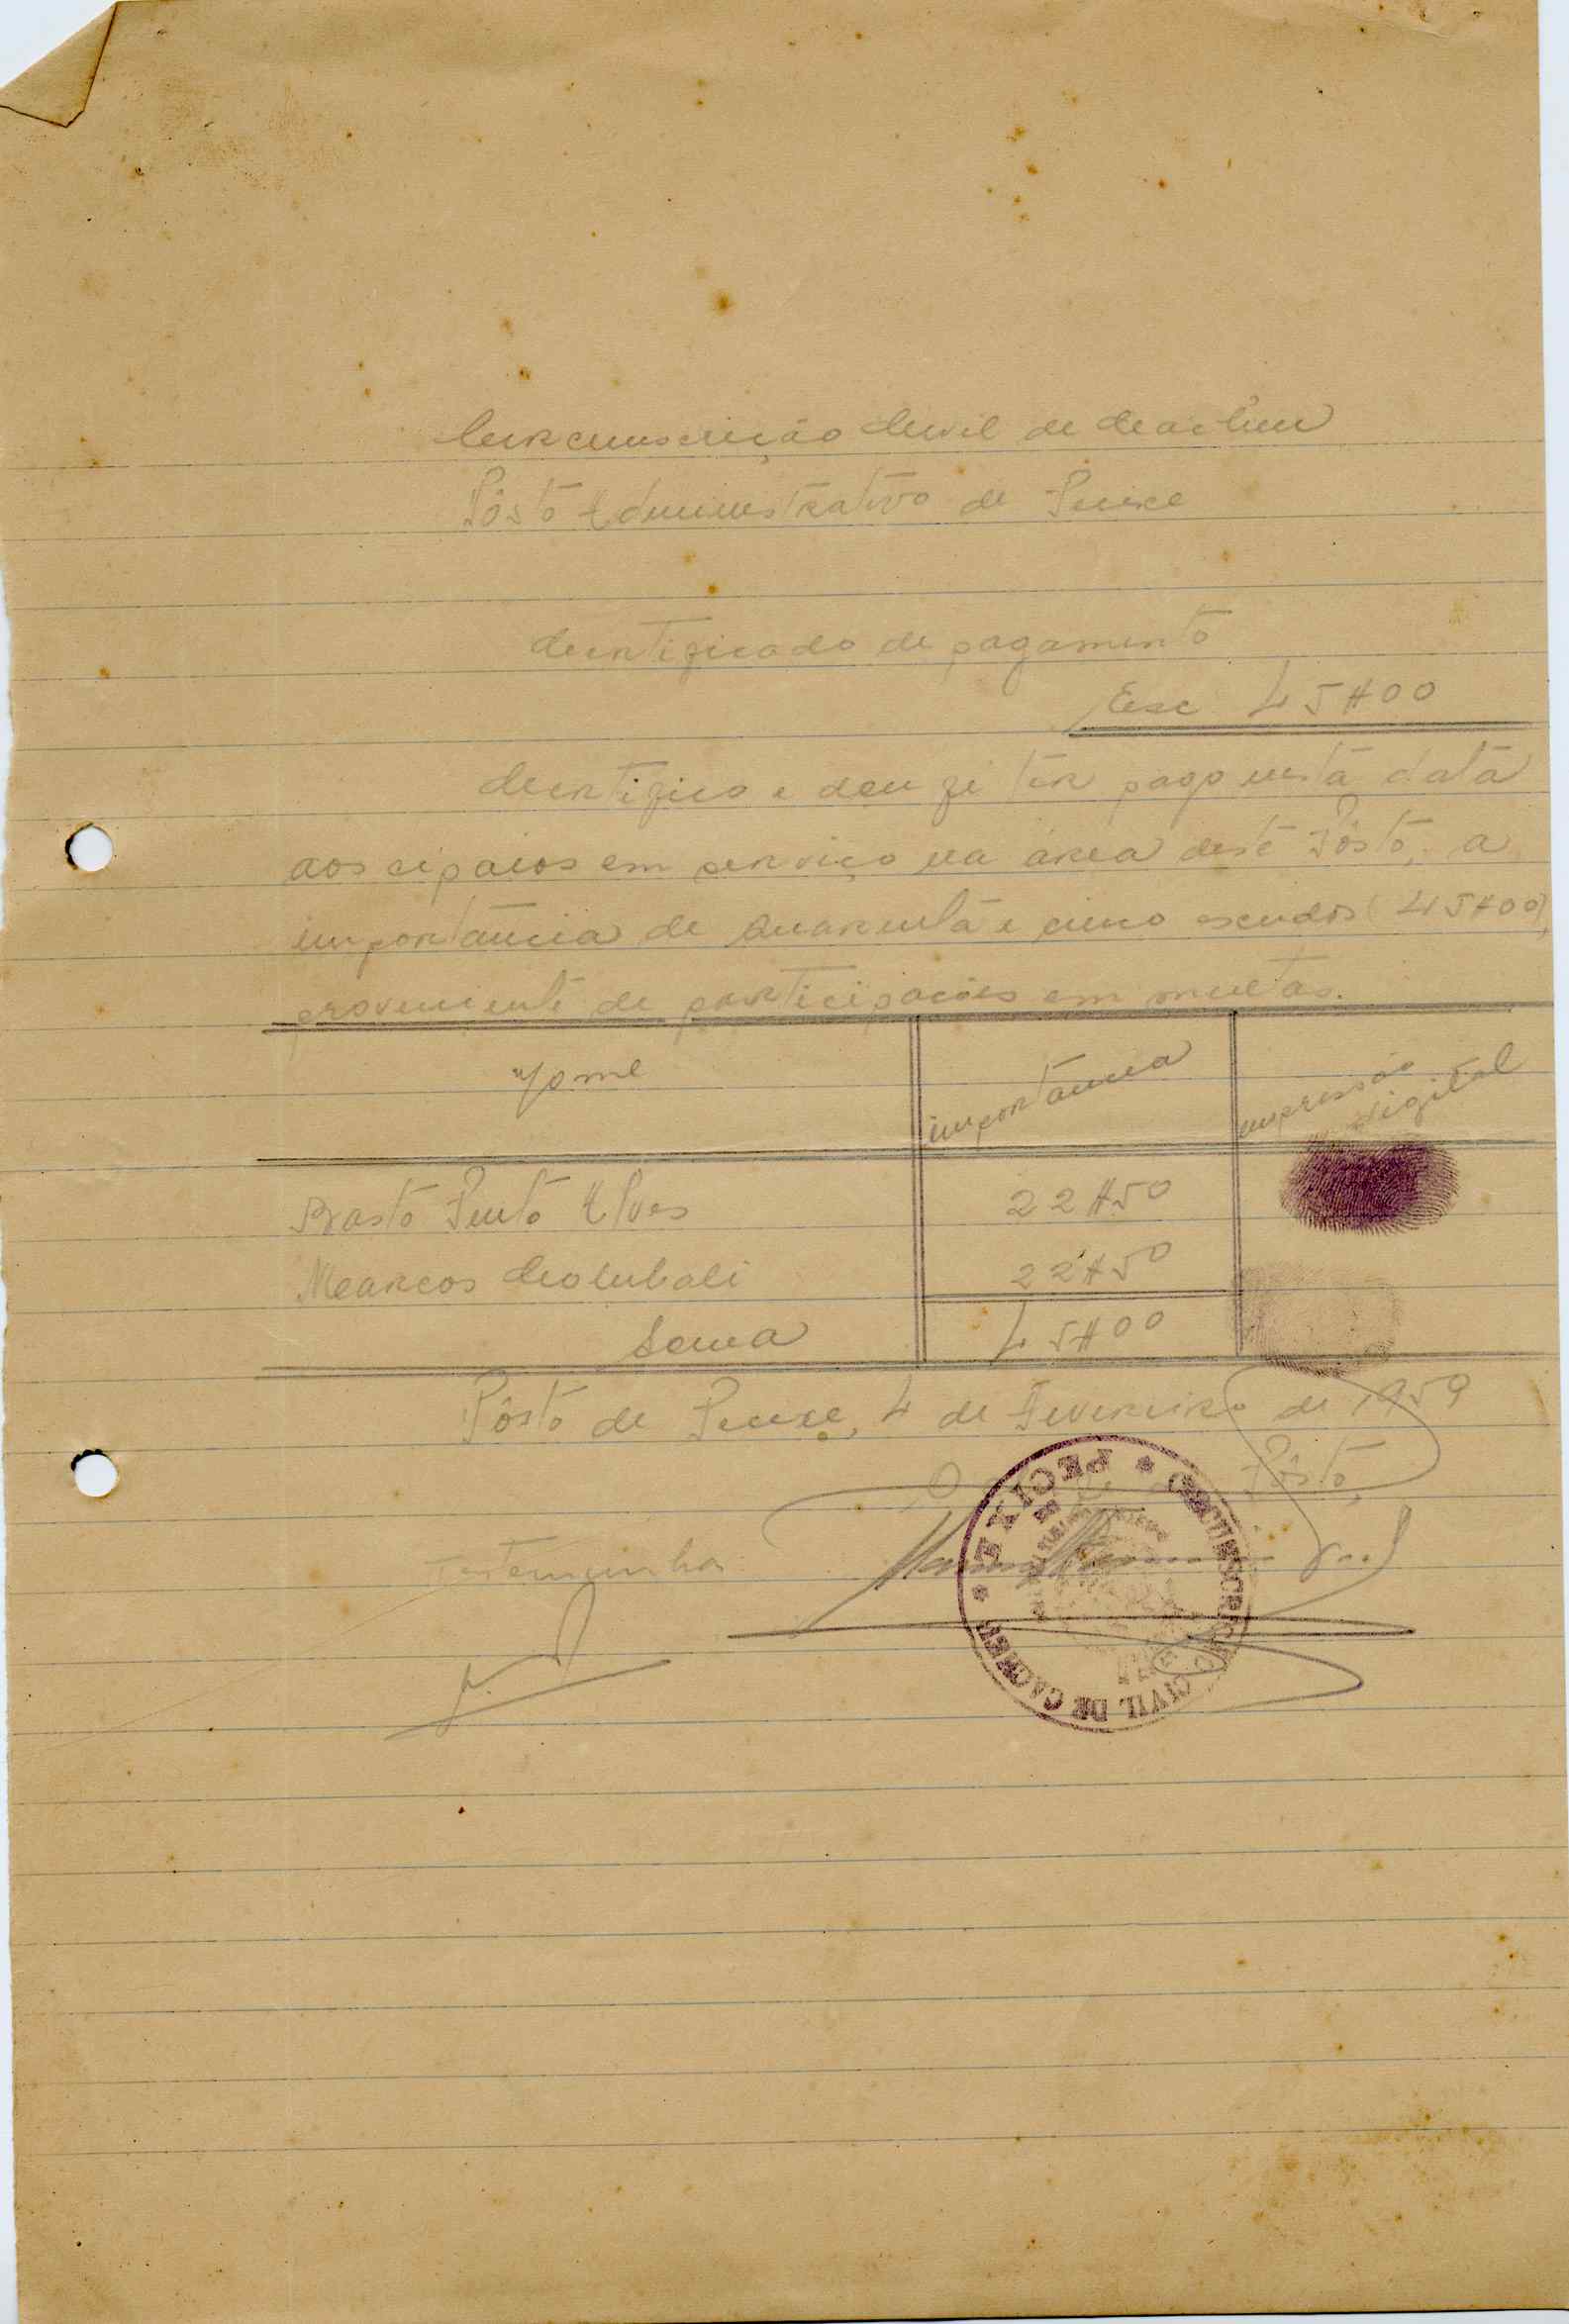 Circunscrição Civil de Cacheu
Pôsto Administrativo de Pecixe
Certificado de pagamento
Esc 45$00
Certifico e dou fé ter pago nesta data
aos cipaios em serviço na área deste Pôsto, a
importância de quarenta e cinco escudos (45$00),
proveniente de participações em multas.
Nome importância impressão digital
Basto Pinto Alves 22$50
Marcos 22$50
Soma 45$00
Pôsto de Pecixe, 4 de Fevereiro de 1959
O Pôsto,
Testemunha
CIRCUNSCRIÇÃO CIVIL DE CACHEU * PECIXE *